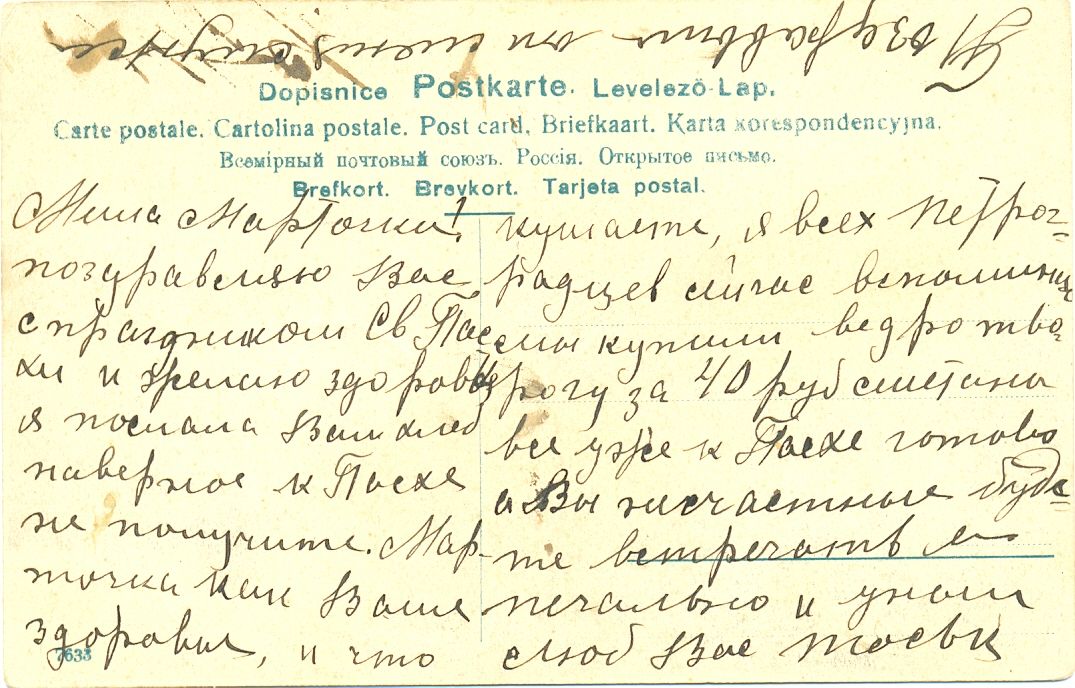 Поздравьте от меня
Dopisnice Postkarte. Levelező-Lap.
Carte postale. Cartolina postale. Post card. Briefkaart. Karta korespondencyjna.
Всемірный почтовый союзъ. Россія. Открытое письмо.
Brefkort. Brevkort. Tarjeta postal.
Мила Марточка!
поздравляю Вас
с праздником Св Пас
хи и желаю здоровья
я послала Вам хлеб
наверное к Пасхе
не получите. Мар-
точка как Ваше
здоровье, и что
7633
кушаете, я всех Петрог=
радцев сичас вспоминаю
мы купили ведро тво-
рогу за 40 руб сметана
все уже к Пасхе готово
а Вы несчастные буде=
те встречать
печально и уныл
люб Вас